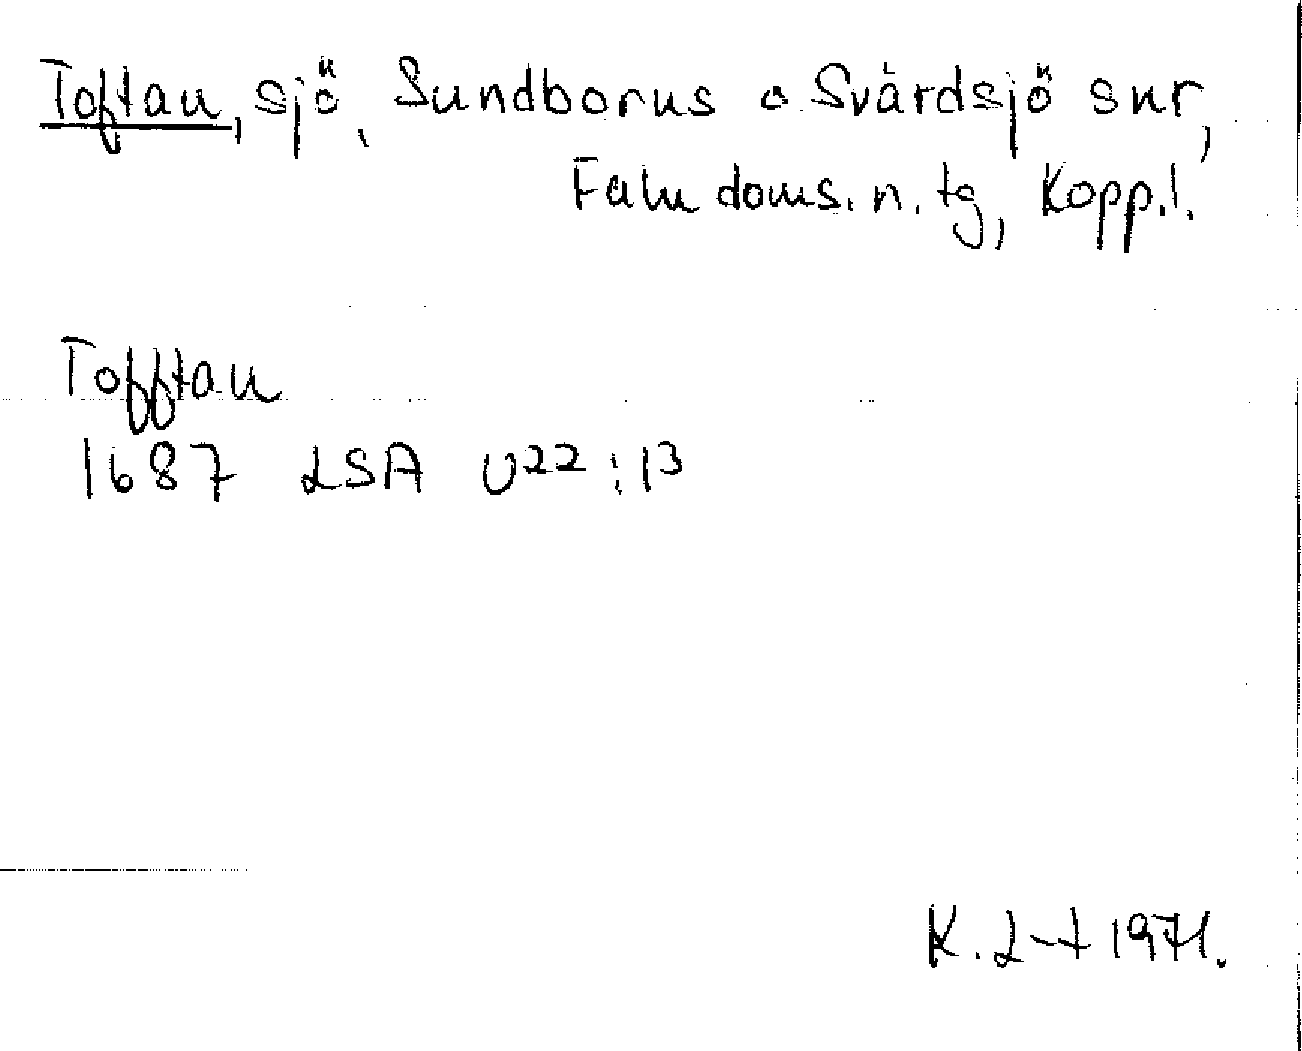 Toftan, sjö, Sundborns o Svärdsjö snr,
Falu doms. n. tg, Kopp. l.
Tofftan
1687 LSA U22:13
K. L-t 1971.